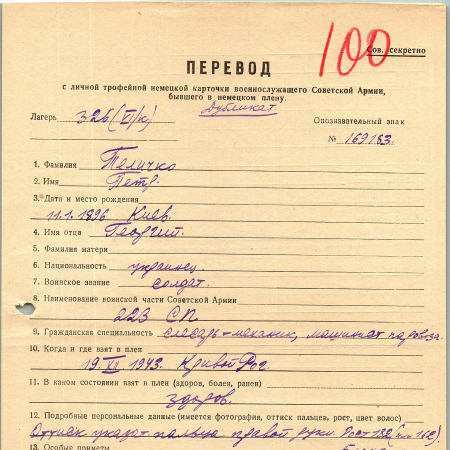 100
Сов. секретно
ПЕРЕВОД
с личной трофейной немецкой карточки военнослужащего Советской Армии,
бывшего в немецком плену.
Дубликат.
Лагерь 326 (VI/к)
Опознавательный знак
№ 169183.
1. Фамилия Теличко
2. Имя Петр.
3. Дата и место рождения
11.1.1896 Киев.
4. Имя отца Георгий.
5. Фамилия матери
6. Национальность украинец.
7. Воинское звание солдат.
8. Наименование воинской части Советской Армии
223 СП
9. Гражданская специальность слесарь-механик, машинист паровоза.
10. Когда и где взят в плен
19.XII 1943. Кривой Рог.
11. В каком состоянии взят в плен (здоров, болен, ранен)
здоров.
12. Подробные персональные данные (имеется фотография, оттиск пальцев, рост, цвет волос)
Оттиск указат. пальца правой руки. Рост 182 (или 162)
13. Особые приметы